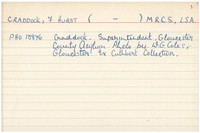 CRADDOCK, F HURST ( - ) MRCS, LSA
PHO 15876 Craddock. Superintendent, Gloucester
County Asylum. Photo by A.G. Coles,
Gloucester. Ex Cuthbert Collection.